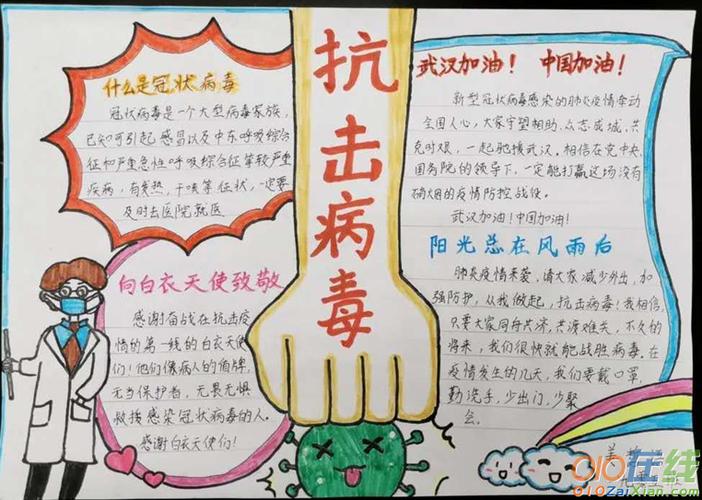 抗击病毒
什么是冠状病毒
冠状病毒是一个大型病毒家族,
已知可引起感冒以及中东呼吸综合
征和严重急性呼吸综合征等较严重
疾病,有发热,干咳等症状,一定要
及时去医院就医
向白衣天使致敬
感谢奋战在抗击疫
情的第一线的白衣天使
们!他们像病人的盾牌,
无当保护者,无畏无惧
救援感染冠状病毒的人。
感谢白衣天使们!
武汉加油! 中国加油!
新型冠状病毒感染的肺炎疫情牵动
全国人心,大家守望相助、众志成城、共
克时艰,一起驰援武汉。相信在党中央
国务院的领导下,一定能打赢这场没有
硝烟的疫情防控战役。
武汉加油!中国加油!
阳光总在风雨后
肺炎疫情来袭,请大家减少外出,加
强防护,从我做起,抗击病毒!我相信,
只要大家同舟共济,共渡难关,不久的
将来,我们很快就能战胜病毒。在
疫情发生的几天,我们要戴口罩,
勤洗手,少出门,少聚
会。
010在线
010ZaiXian.com